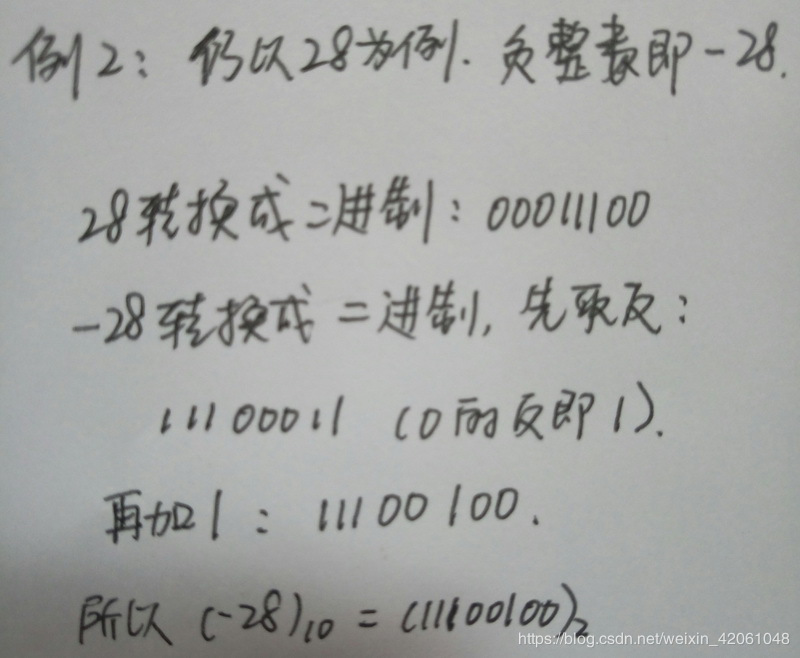 例2：仍以28为例. 负整数即-28.
28转换成二进制：00011100
-28转换成二进制, 先取反：
11100011 (0的反即1).
再加1：11100100.
所以 (-28)₁₀ = (11100100)₂
https://blog.csdn.net/weixin_42061048